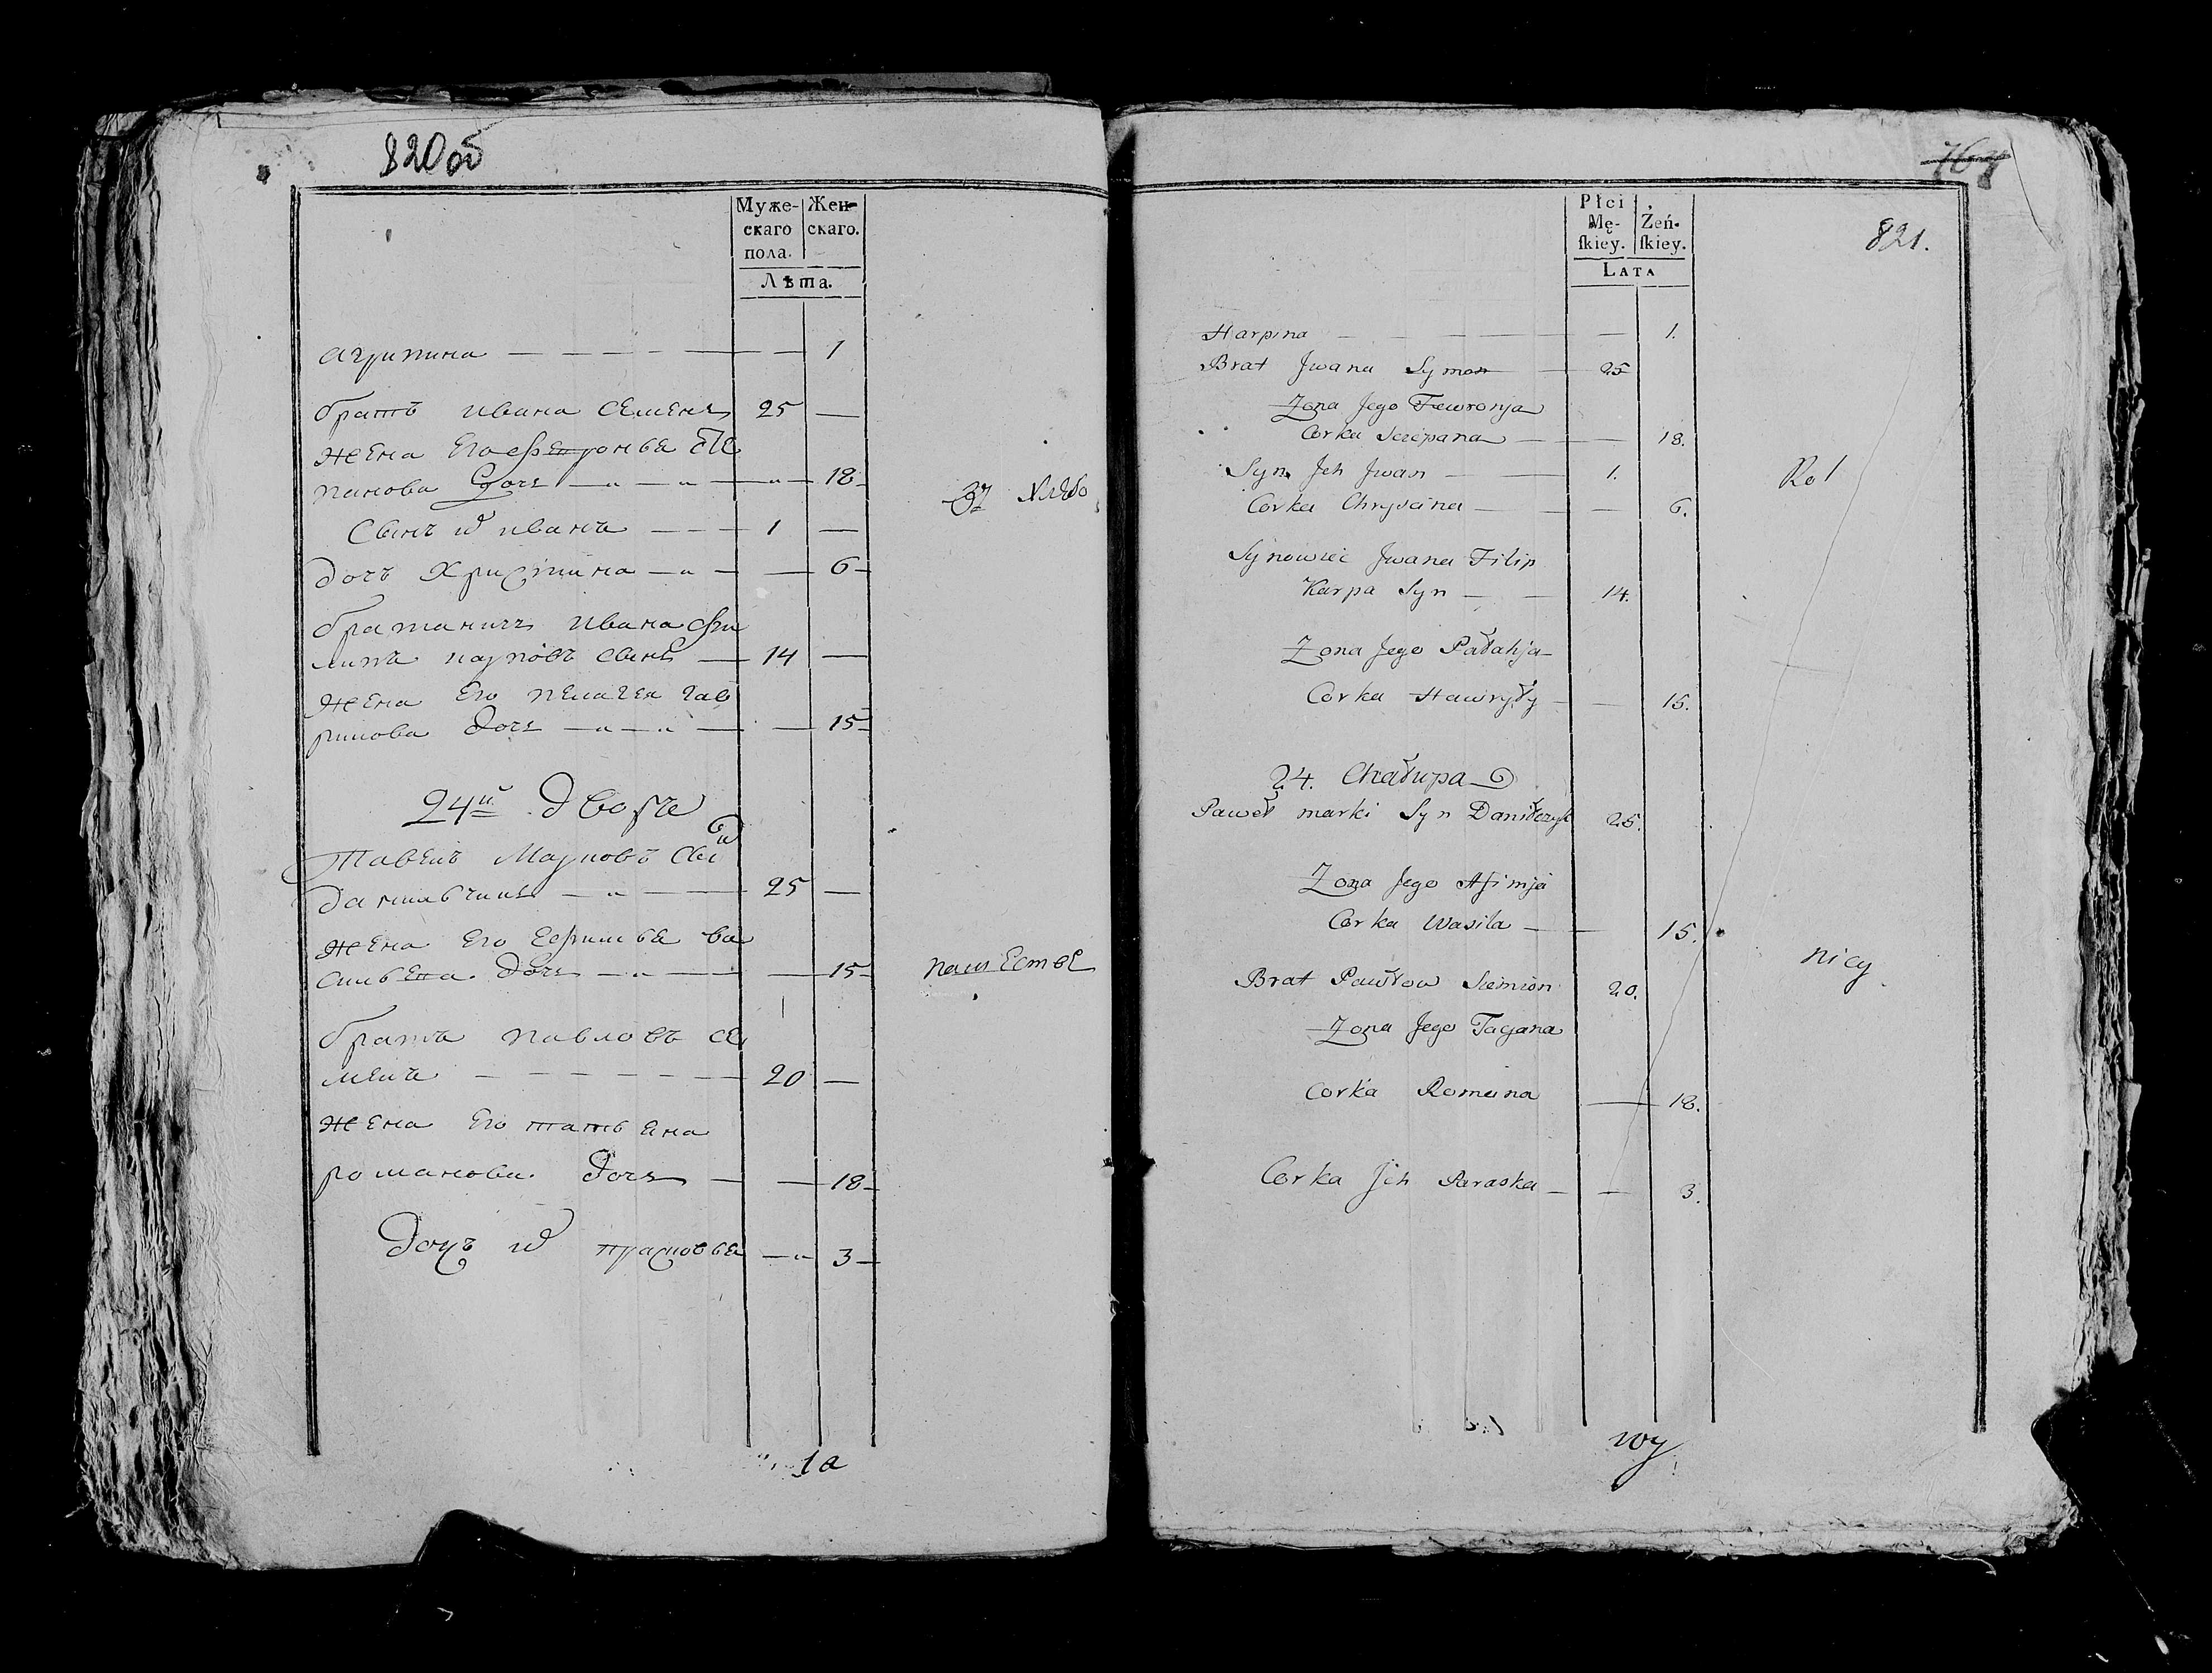 820об
Муже-
скаго
пола.
Жен-
скаго.
Лѣта.
агрипина 1
братъ ивана Семенъ 25
жена Его Февронья Сте
панова дочь 18
Сынъ их иванъ 1
дочь Христина 6
братаничь ивана Фи
липъ карповъ сынъ 14
жена Его пелагея гав
рилова дочь 15
24й дворъ
Павелъ Марковъ сынъ
данильчикъ 25
жена Его Ефимья ва
сильева дочь 15
братъ павловъ се
менъ 20
жена Его татьяна
романова дочь 18
дочь их прасковья 3
хлебо
пашество
767
821.
Płci
Mę-
skiey.
Żeń-
skiey.
LATA
Harpina 1.
Brat Jwana Symon 25
Zona Jego Fewronja
Corka Sczepana 18.
Syn Jch Jwan 1.
Corka Chryscina 6.
Synowiec Jwana Filip
Karpa Syn 14.
Zona Jego Pałahja
Corka Hawryły 15.
24. Chałupa
Paweł marki Syn Daniłczyk 25.
Zona Jego Afimja
Corka Wasila 15.
Brat Pawłow Siemion 20.
Zona Jego Tacjana
Corka Romana 18.
Corka Jch Paraska 3.
Rol
nicy
wy